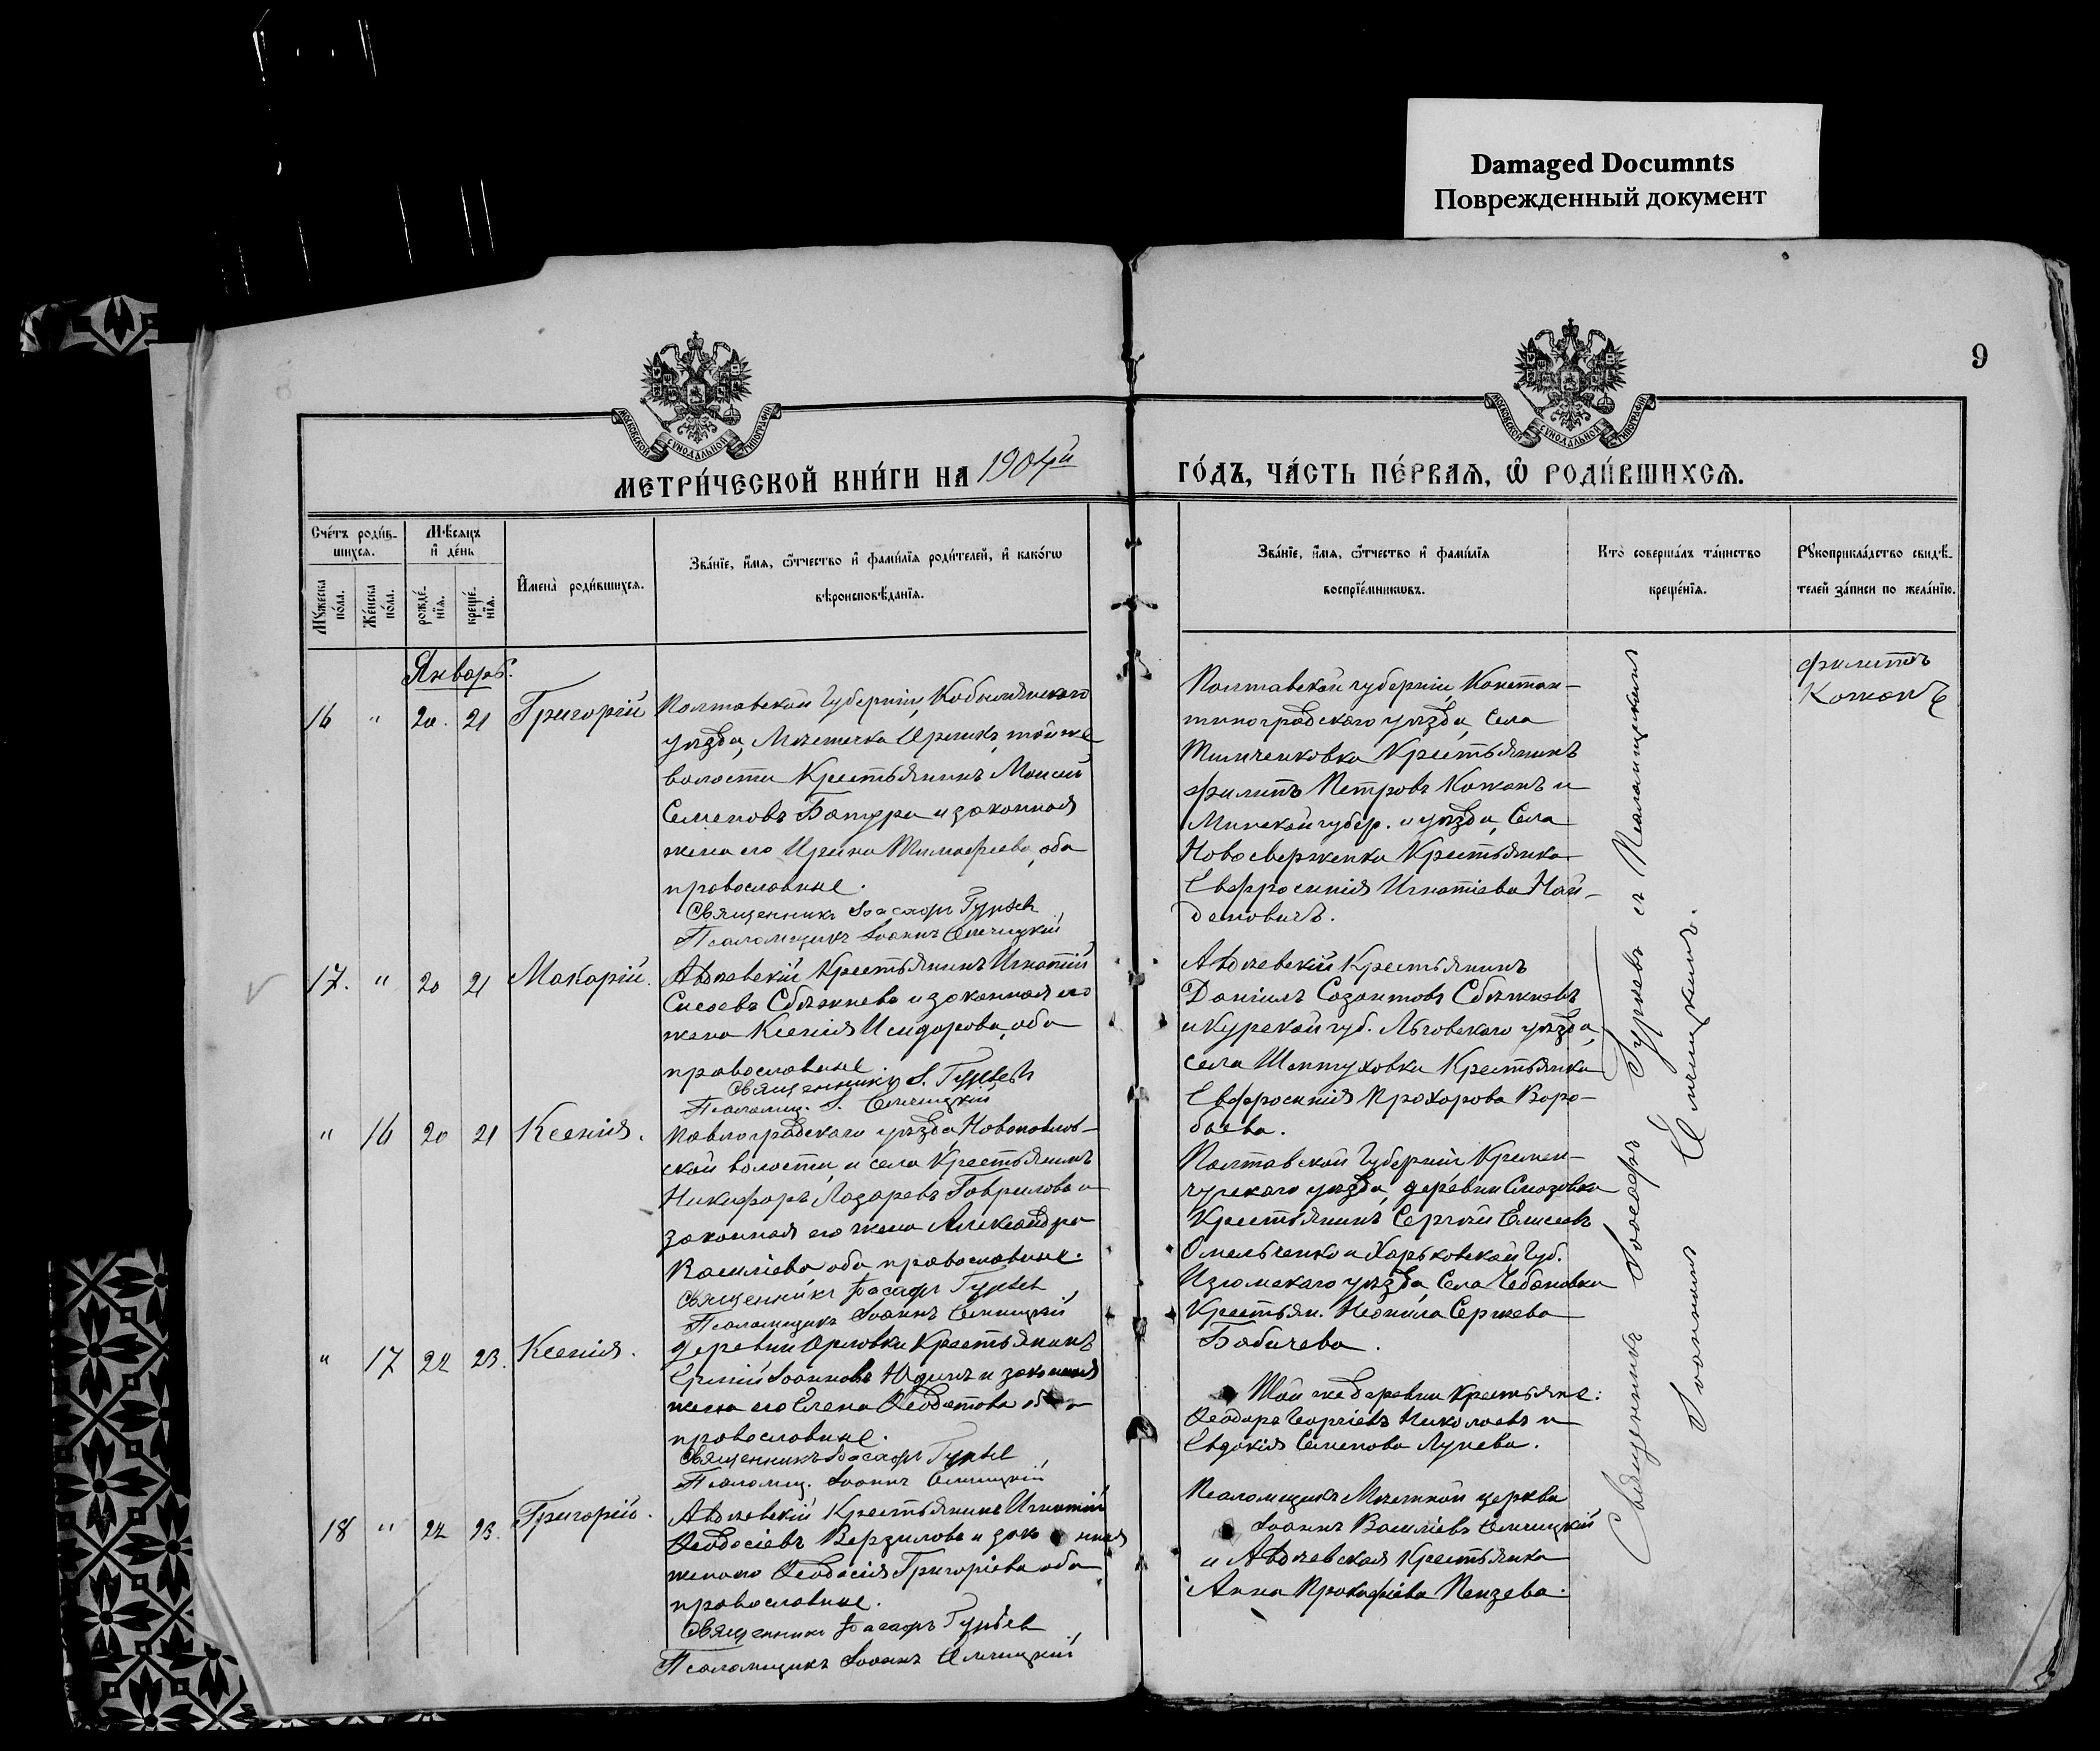 Damaged Documnts
Поврежденный документ
9
МОСКОВСКОЙ СѴНОДАЛЬНОЙ ТИПОГРАФІИ
МОСКОВСКОЙ СѴНОДАЛЬНОЙ ТИПОГРАФІИ
МЕТРИ́ЧЕСКОЙ КНИ́ГИ НА 1904й
ГО́ДЪ, ЧА́СТЬ ПЕ́РВАѦ, Ѡ҆ РОДИ́ВШИХСѦ.
Сче́тъ роди́в-
шихсѧ.
Мꙋ́жеска по́ла.
Же́нска по́ла.
Мѣ́сѧцъ
и҆ де́нь
рожде́-
нїѧ.
креще́-
нїѧ.
И҆мена̀ роди́вшихсѧ.
Зва́нїе, и҆́мѧ, ѻ҆́тчество и҆ фами́лїѧ роди́телей, и҆ како́гѡ
вѣроисповѣ́данїѧ.
Зва́нїе, и҆́мѧ, ѻ҆́тчество и҆ фами́лїѧ
воспрїе́мникѡвъ.
Кто̀ соверша́лъ та́инство
креще́нїѧ.
Рꙋкоприкла́дство свидѣ́-
телей за́писи по жела́нїю.
Январь.
16 " 20. 21 Григорій
Полтавской Губерніи, Кобылякскаго
уѣзда, Мѣстечка Орликъ, той же
волости Крестьянинъ Моисей
Семеновъ Батура и законная
жена его Ирина Тимофеева, оба
православные.
Священникъ Іоасафъ Гурьев
Псаломщикъ Іоаннъ Ольшицкій
Полтавской губерніи, Констан-
тиноградскаго уѣзда, Села
Тимченковка Крестьянинъ
Филипъ Петровъ Кожанъ и
Минской губер. и уѣзда, Села
Новосверженка Крестьянка
Евфросинія Игнатіева Най-
деновичъ.
Филипъ
Кожанъ
17. " 20 21 Макарій.
Авдѣевскій Крестьянинъ Игнатій
Сысоевъ Сбѣжнева и законная его
жена Ксенія Исидорова, оба
православные.
Священникъ І. Гурьев
Псаломщ. І. Ольшицкій
Авдѣевскій Крестьянинъ
Даніилъ Созонтовъ Сбѣжневъ
и Курской губ. Льговскаго уѣзда,
села Шептуховки Крестьянка
Евфросинія Прохорова Воро-
баева.
" 16 20 21 Ксенія.
Павлоградскаго уѣзда, Новопавлов-
ской волости, и села Крестьянинъ
Никифоръ Лазаревъ Гаврилова и
законная его жена Александра
Василіева оба православные.
Священникъ Іоасафъ Гурьев
Псаломщикъ Іоаннъ Ольшицкій
Полтавской Губерніи Кремен-
чугскаго уѣзда, деревни
Крестьянинъ Сергій Елисеевъ
Омельченко и Харьковской Губ.
Изюмскаго уѣзда, Села
Крестьян. Неонила Сергеева
Бабичева.
" 17 22 23. Ксенія.
деревни Орловки Крестьянинъ
Іоанновъ Юдинъ и законная
жена его Елена Ѳеодотова оба
православные.
Священникъ Іоасафъ Гурьев
Псаломщ. Іоаннъ Ольшицкій
Той же деревни Крестьяне:
Ѳеодоръ Георгіевъ Николаевъ и
Евдокія Семенова Лунева.
18 " 22 23. Григорій.
Авдѣевскій Крестьянинъ Игнатій
Ѳеодосіевъ Верзилова и законная
жена его Ѳеодосія Григоріева оба
православные.
Священникъ Іоасафъ Гурьев
Псаломщикъ Іоаннъ Ольшицкій
Псаломщикъ Мѣстной церкви
Іоаннъ Василіевъ Ольшицкій
и Авдѣевская Крестьянка
Анна Прокофіева Пензева.
Священникъ Іоасафъ Гурьевъ съ Псаломщикомъ
Іоанномъ Ольшицкимъ.